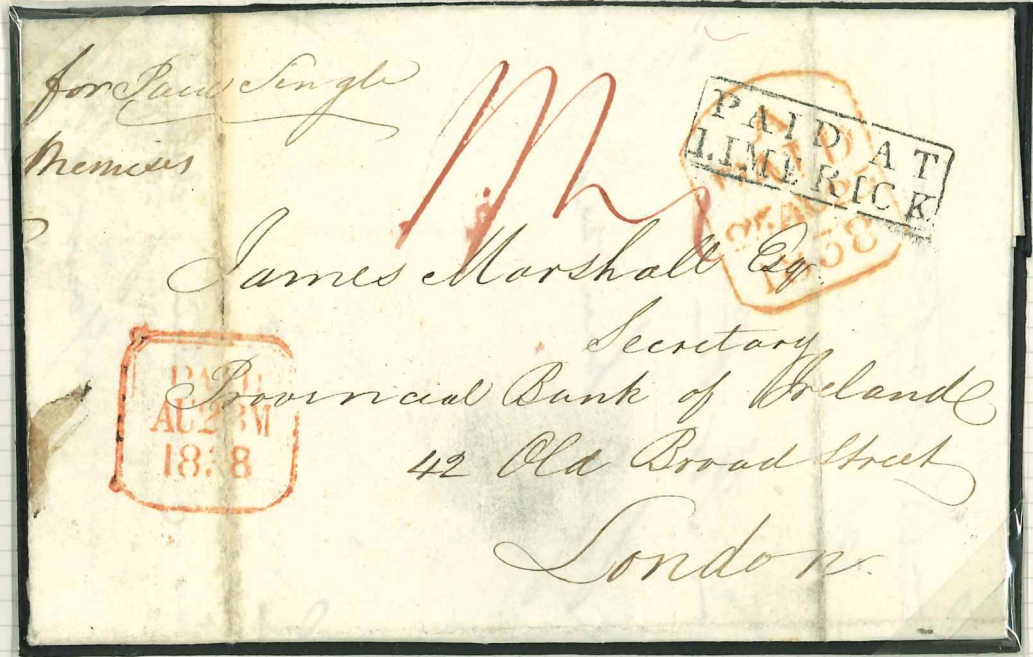 for Paid Single
Premises
PAID AT
LIMERICK
PAID
AU 25
1838
James Marshall Esq.
Secretary
Provincial Bank of Ireland
42 Old Broad Street
London
PAID
AU 28 M
1838